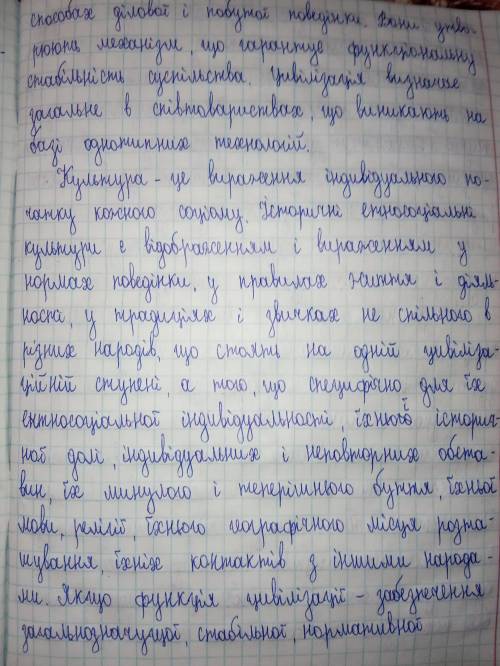 способах ділової і побутої поведінки. Вони утво-
рюють механізм, що гарантує функціональну
стабільність суспільства. Цивілізація визначає
загальне в співтовариствах, що виникають на
базі однотипних технологій.
Культура - це вираження індивідуального по-
чатку кожного соціому. Історичні етносоціальні
культури є відображенням і вираженням у
нормах поведінки, у правилах життя і діяль-
ності, у традиціях і звичках не спільного в
різних народів, що стоять на одній цивіліза-
ційній ступені, а того, що специфічно для їх
ентносоціальної індивідуальності, їхньої історич-
ної долі, індивідуальних і неповторних обста-
вин, їх минулого і теперішнього буття, їхньої
мови, релігії, їхнього географічного місця розта-
шування, їхніх контактів з іншими народа-
ми. Якщо функція цивілізації - забезпечення
загальнозначущої, стабільної, нормативної